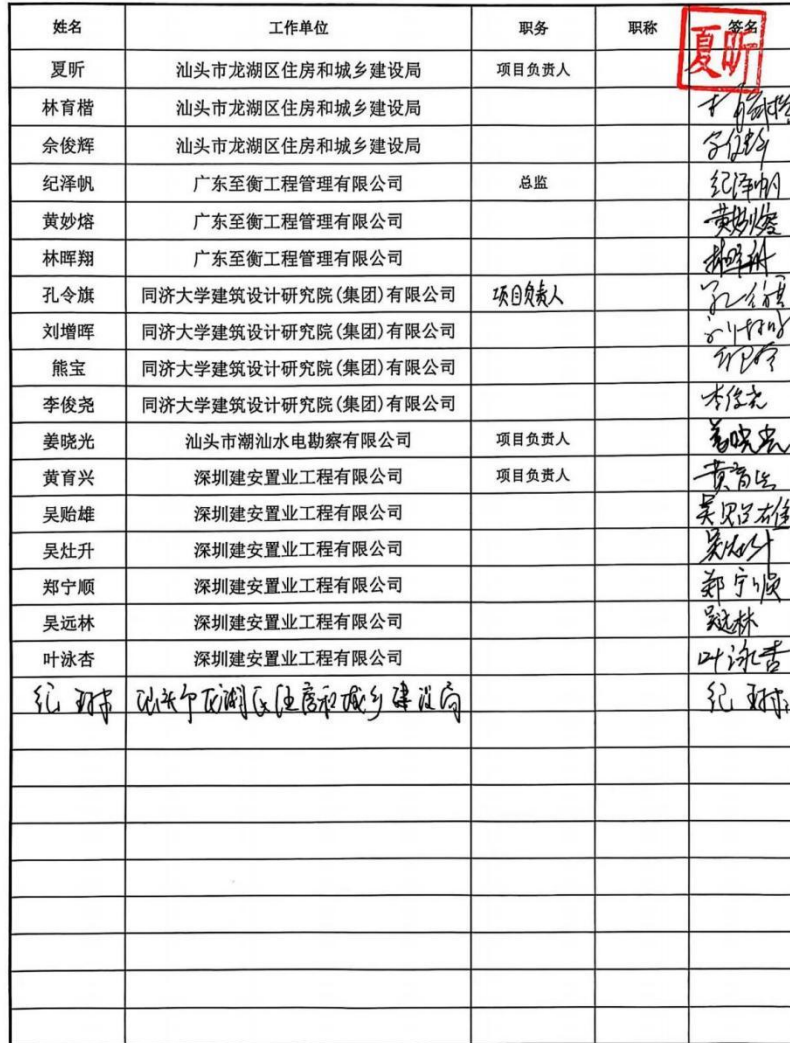 姓名 工作单位 职务 职称 签名
夏昕 汕头市龙湖区住房和城乡建设局 项目负责人 夏昕
林育楷 汕头市龙湖区住房和城乡建设局
佘俊辉 汕头市龙湖区住房和城乡建设局
纪泽帆 广东至衡工程管理有限公司 总监 纪泽帆
黄妙熔 广东至衡工程管理有限公司 黄妙熔
林晖翔 广东至衡工程管理有限公司
孔令旗 同济大学建筑设计研究院(集团)有限公司 项目负责人 孔令旗
刘增晖 同济大学建筑设计研究院(集团)有限公司
熊宝 同济大学建筑设计研究院(集团)有限公司
李俊尧 同济大学建筑设计研究院(集团)有限公司 李俊尧
姜晓光 汕头市潮汕水电勘察有限公司 项目负责人 姜晓光
黄育兴 深圳建安置业工程有限公司 项目负责人 黄育兴
吴贻雄 深圳建安置业工程有限公司 吴贻雄
吴灶升 深圳建安置业工程有限公司 吴灶升
郑宁顺 深圳建安置业工程有限公司 郑宁顺
吴远林 深圳建安置业工程有限公司 吴远林
叶泳杏 深圳建安置业工程有限公司 叶泳杏
纪 汕头市龙湖区住房和城乡建设局 纪